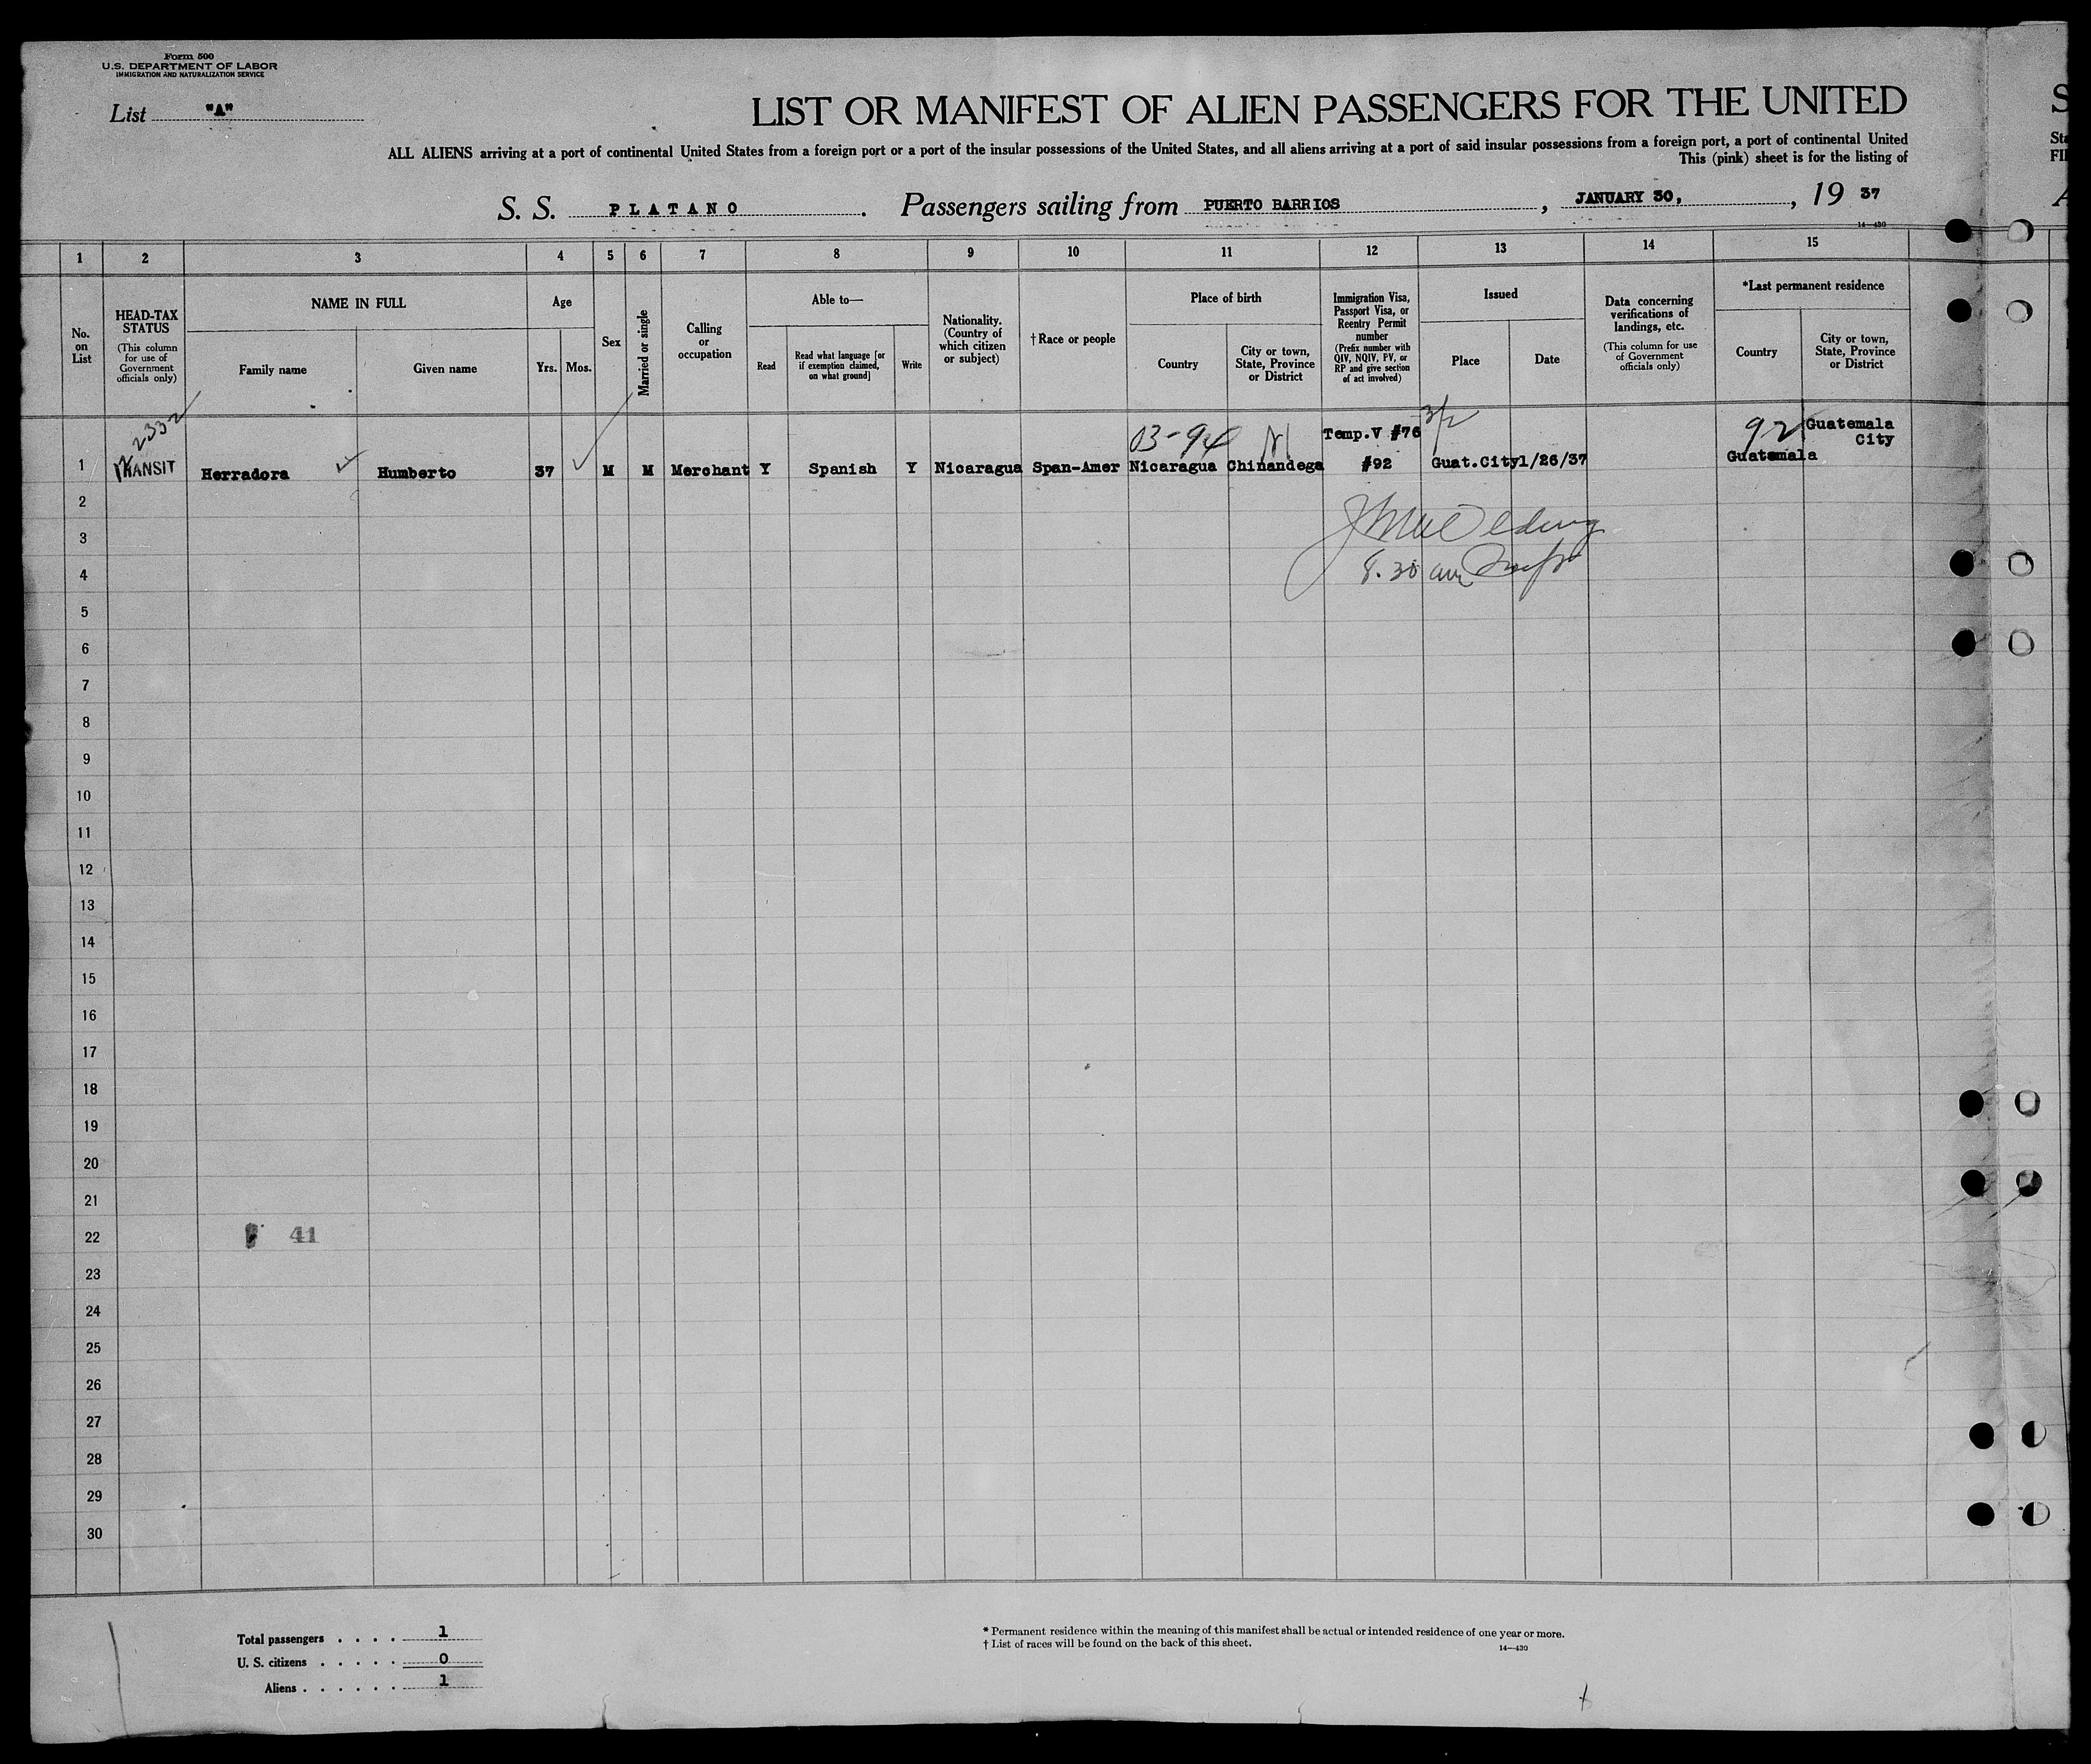 Form 500
U.S. DEPARTMENT OF LABOR
IMMIGRATION AND NATURALIZATION SERVICE
List "A"
LIST OR MANIFEST OF ALIEN PASSENGERS FOR THE UNITED
S
ALL ALIENS arriving at a port of continental United States from a foreign port or a port of the insular possessions of the United States, and all aliens arriving at a port of said insular possessions from a foreign port, a port of continental United
Sta
This (pink) sheet is for the listing of
FI
S. S. PLATANO. Passengers sailing from PUERTO BARRIOS, JANUARY 30,, 19 37
A
14—430
1 2 3 4 5 6 7 8 9 10 11 12 13 14 15
No. on List
HEAD-TAX STATUS (This column for use of Government officials only)
NAME IN FULL
Family name Given name
Age
Yrs. Mos.
Sex
Married or single
Calling or occupation
Able to—
Read
Read what language [or if exemption claimed, on what ground]
Write
Nationality. (Country of which citizen or subject)
† Race or people
Place of birth
Country
City or town, State, Province or District
Immigration Visa, Passport Visa, or Reentry Permit number (Prefix number with QIV, NQIV, PV, or RP and give section of act involved)
Issued
Place Date
Data concerning verifications of landings, etc. (This column for use of Government officials only)
*Last permanent residence
Country
City or town, State, Province or District
2332
03-94 N Temp.V #76 3/2 92 Guatemala City
1 TRANSIT Herradora Humberto 37 M M Merchant Y Spanish Y Nicaragua Span-Amer Nicaragua Chinandega #92 Guat.City 1/26/37 Guatemala
2
3
4 8.30 am
5
6
7
8
9
10
11
12
13
14
15
16
17
18
19
20
21
22 41
23
24
25
26
27
28
29
30
Total passengers . . . . 1
U. S. citizens . . . . . 0
Aliens . . . . . . 1
* Permanent residence within the meaning of this manifest shall be actual or intended residence of one year or more.
† List of races will be found on the back of this sheet.
14—430